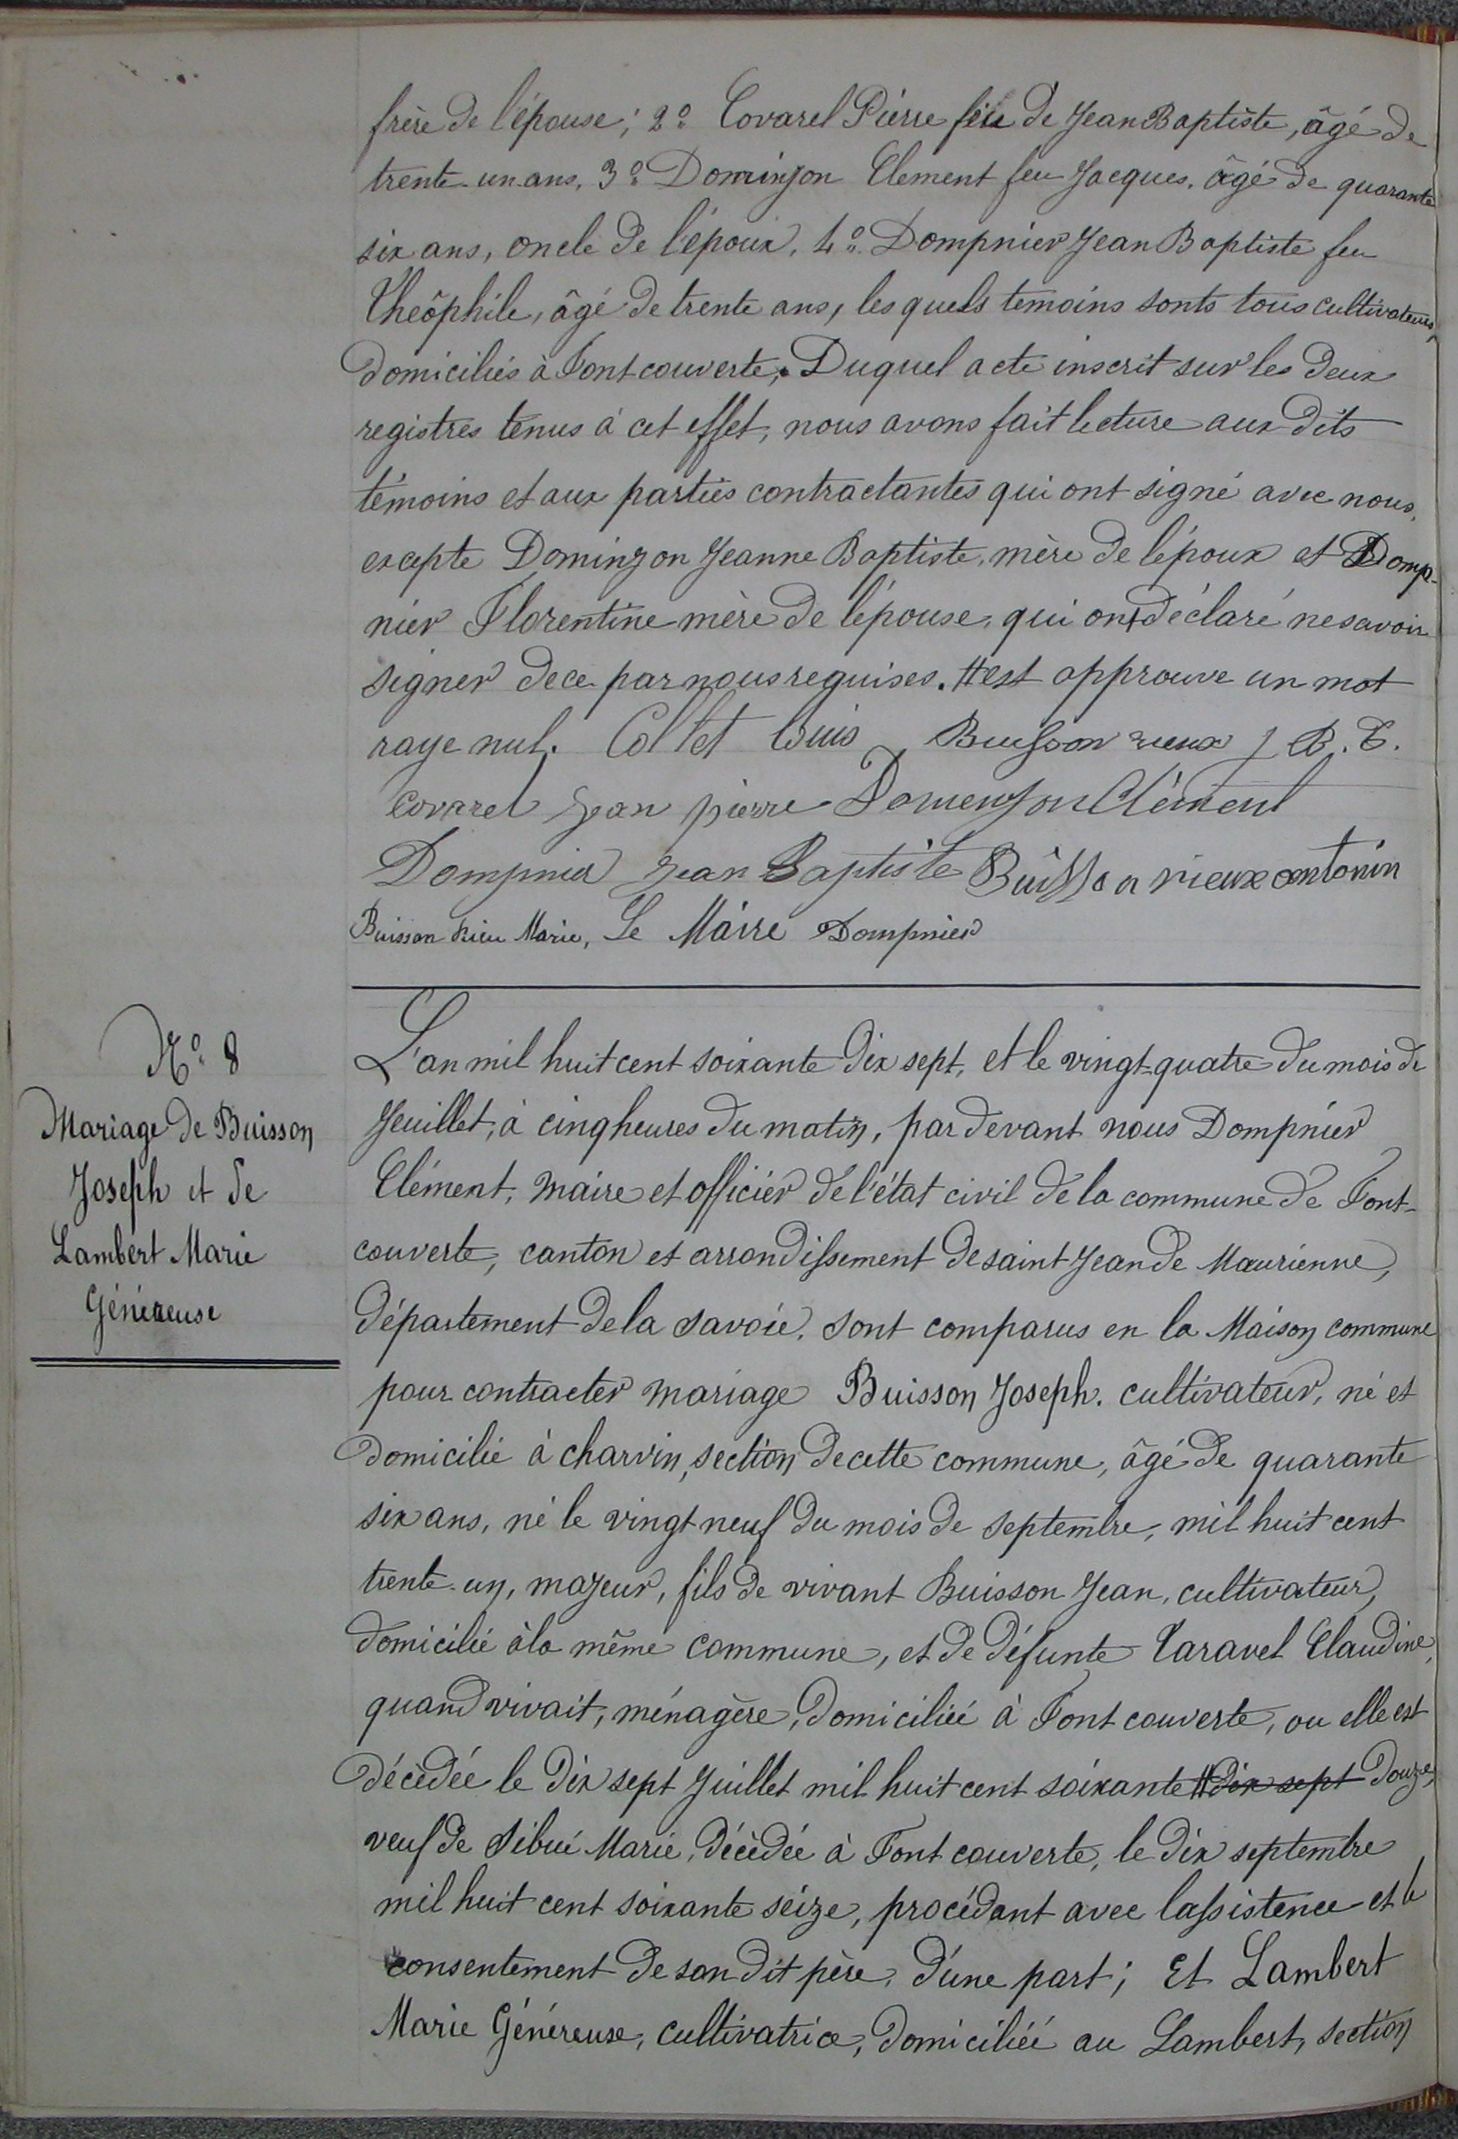 frère de l'épouse; 2º Covarel Pierre feu de Jean Baptiste, âgé de
trente-un ans, 3º Dominjon Clement feu Jacques, âgé de quarante
six ans, oncle de l'époux, 4º Dompnier Jean Baptiste feu
Théophile, âgé de trente ans, les quels témoins sonts tous cultivateurs,
domiciliés à Fontcouverte, Duquel acte inscrit sur les deux
registres tenus à cet effet, nous avons fait lecture aux dits
témoins et aux parties contractantes qui ont signé avec nous,
excepte Dominjon Jeanne Baptiste, mère de l'époux et Domp-
nier Florentine mère de l'épouse, qui ont déclaré ne savoir
signer de ce par nous requises. # est approuve un mot
raye nul. Collet Louis Buisson rieux J B. T.
Covarel jean pierre Domenjon Clément
Dompnier jean Baptiste Buisson rieux antonin
Buisson Rieu Marie, Le Maire Dompnier
Nº 8
Mariage de Buisson
Joseph et de
Lambert Marie
Généreuse
L'an mil huit cent soixante dix sept, et le vingt-quatre du mois de
Jeuillet, à cinq heures du matin, par devant nous Dompnier
Clément, Maire et officier de l'état civil de la commune de Font-
couverte, canton et arrondissement de saint Jean de Maurienne,
département de la Savoie, sont comparus en la Maison commune
pour contracter mariage Buisson Joseph, cultivateur, né et
domicilié à charvin, section de cette commune, âgé de quarante
six ans, né le vingt neuf du mois de septembre, mil huit cent
trente-un, majeur, fils de vivant Buisson Jean, cultivateur,
domicilié à la même commune, et de défunte Taravel Claudine,
quand vivait, ménagère, domiciliée à Font couverte, ou elle est
décédée le dix sept Juillet mil huit cent soixante # dix sept Douze,
veuf de Sibué Marie, décédée à Font couverte, le dix septembre
mil huit cent soixante seize, procédant avec l'assistence et le
consentement de son dit père, d'une part; Et Lambert
Marie Généreuse, cultivatrice, domiciliée au Lambert, section